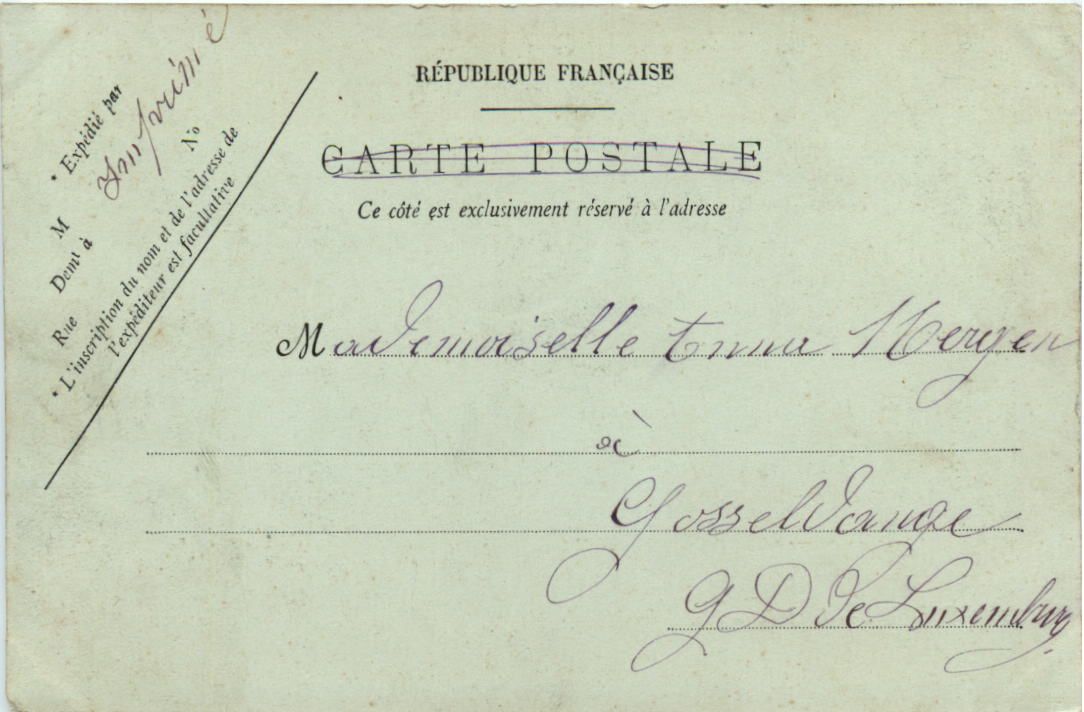 RÉPUBLIQUE FRANÇAISE
CARTE POSTALE
Ce côté est exclusivement réservé à l'adresse
• Expédié par
Imprimé
M
Demt à
Rue No
• L'inscription du nom et de l'adresse de
l'expéditeur est facultative
Mademoiselle Anna Mergen
à
Gosseldange
G D de Luxemburg